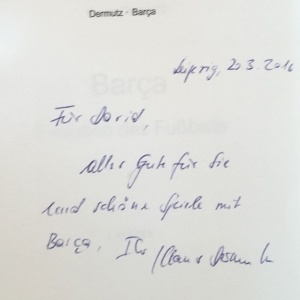 Dermutz · Barça
Leipzig, 20.3.2016
Für David,
alles Gute für Sie
und schöne Spiele mit
Barça, Ihr Klaus Dermutz
Barça